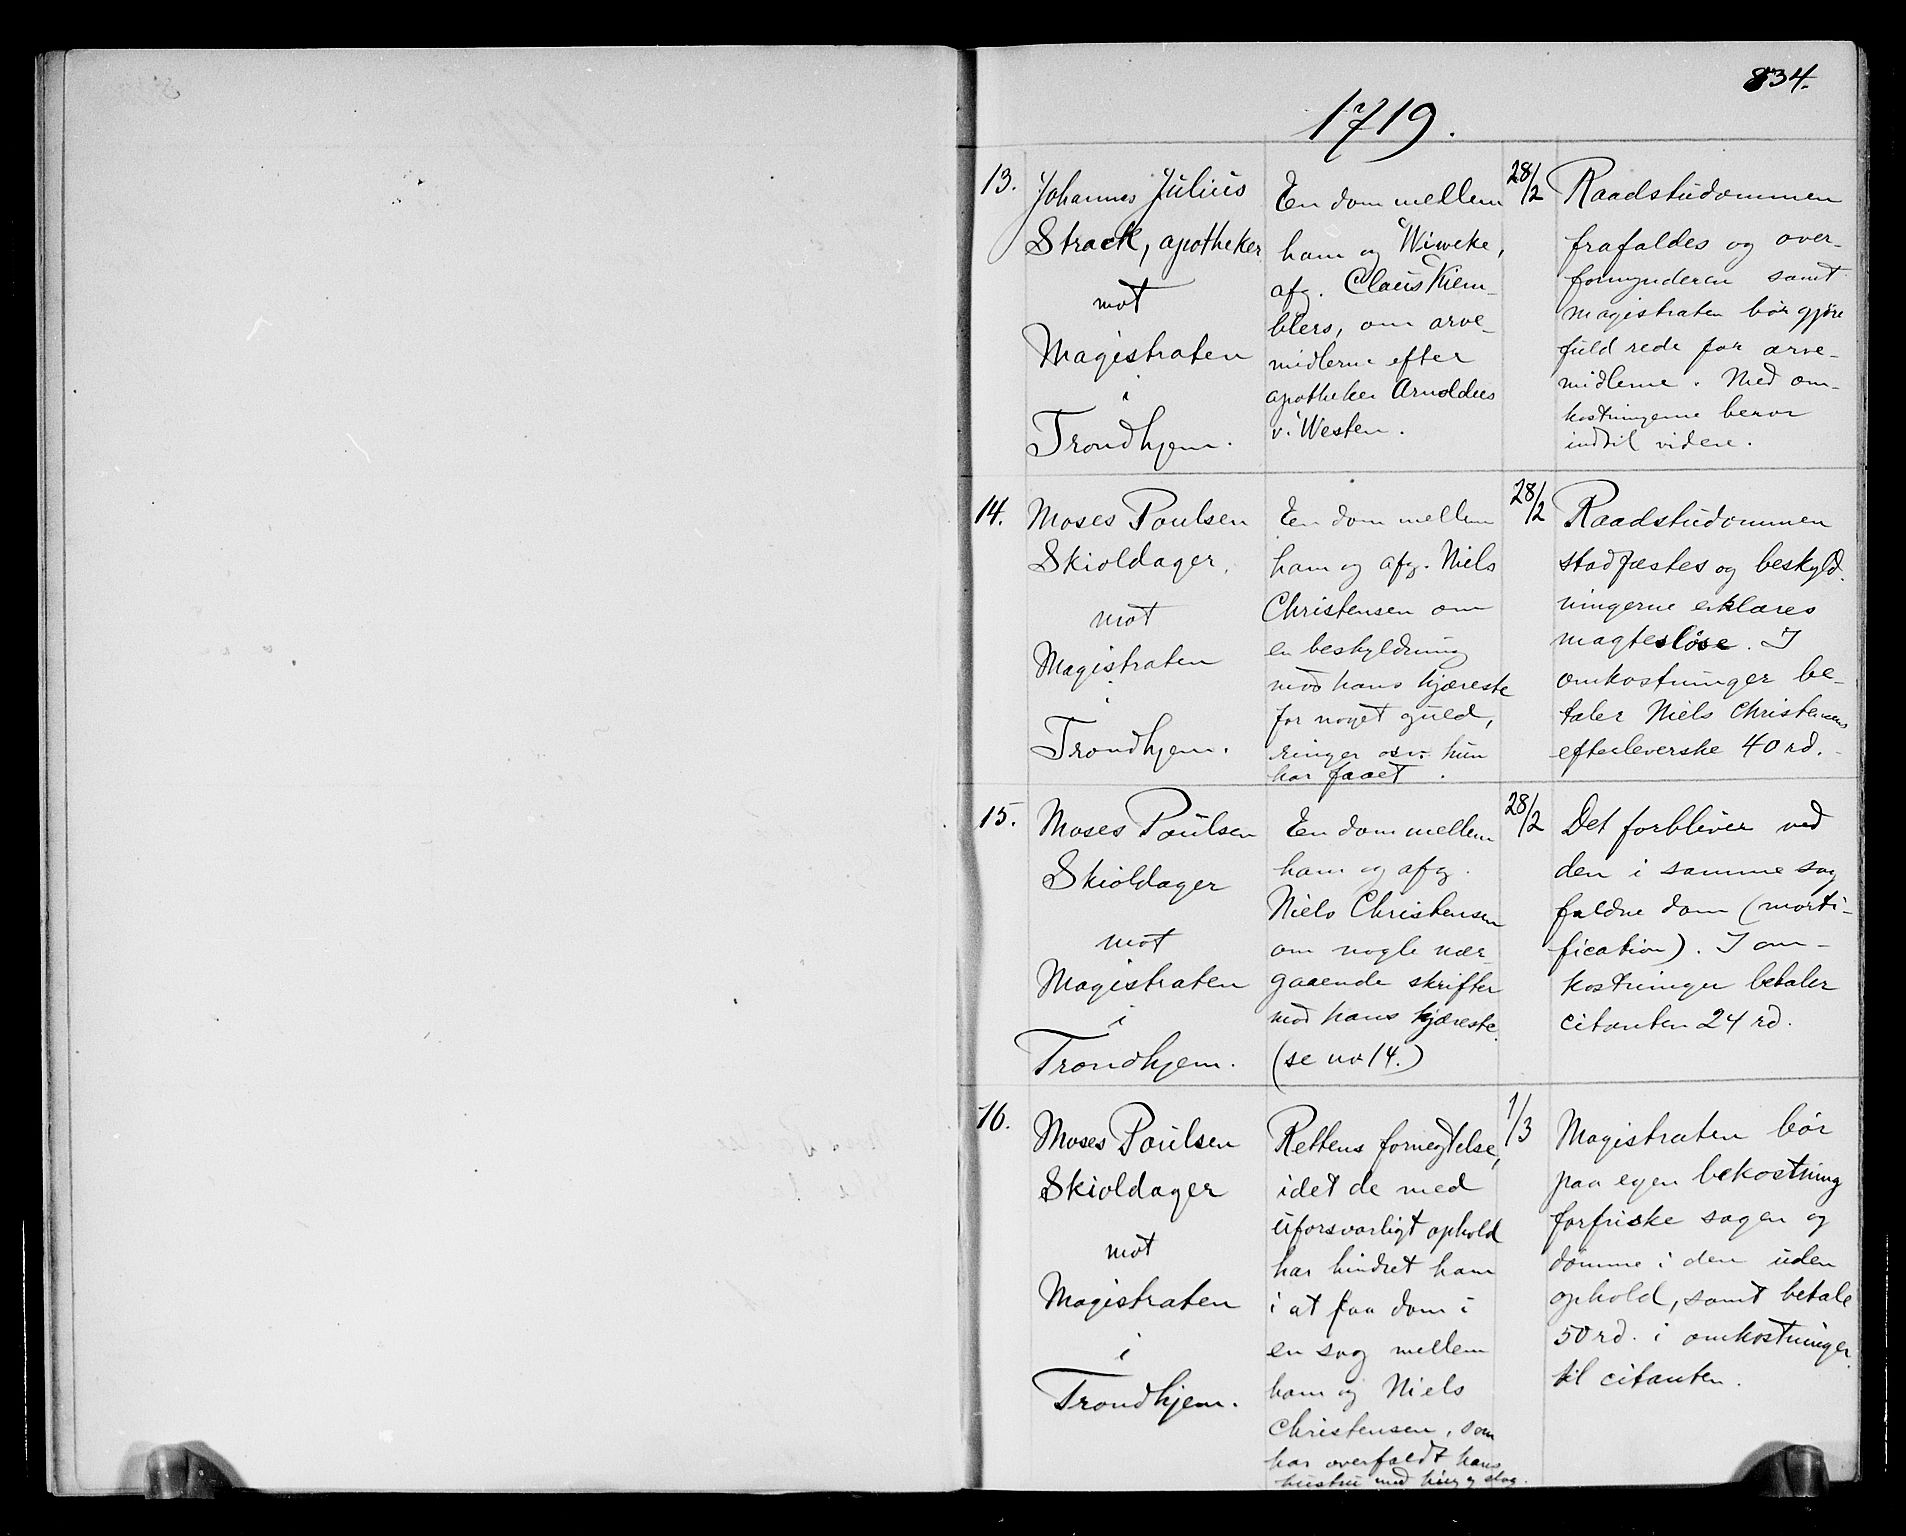 834.
1719.
13.
Johannes Julius
Strack, apotheker
mot
Magistraten
i
Trondhjem.
En dom mellem
ham og Wiweke,
afg. Claus Kiem-
blers, om arve-
midlerne efter
apotheker Arnoldus
v. Westen.
28/2
Raadstudommen
frafaldes og over-
formynderen samt
magistraten bör gjöre
fuld rede for arve-
midlerne. Med om-
kostningerne beror
indtil videre.
14.
Moses Poulsen
Skioldager,
mot
Magistraten
i
Trondhjem.
En dom mellem
ham og afg. Niels
Christensen om
en beskyldning
mod hans kjæreste
for noget guld,
ringer osv. hun
har faaet.
28/2
Raadstudommen
stadfæstes og beskyld-
ningerne erklæres
magteslöse. I
omkostninger be-
taler Niels Christensens
efterleverske 40 rd.
15.
Moses Poulsen
Skioldager
mot
Magistraten
i
Trondhjem.
En dom mellem
ham og afg.
Niels Christensen
om nogle nær-
gaaende skrifter
mod hans kjæreste
(se no 14.)
28/2
Det forbliver ved
den i samme sag
faldne dom (morti-
fication). I om-
kostninger betaler
citanten 24 rd.
16.
Moses Poulsen
Skioldager
mot
Magistraten
i
Trondhjem.
Rettens fornegtelse,
idet de med
uforsvarligt ophold
har hindret ham
i at faa dom i
en sag mellem
ham og Niels
Christensen, som
har overfaldt hans
hustru med hug og slag.
1/3
Magistraten bör
paa egen bekostning
forfriske sagen og
dömme i den uden
ophold, samt betale
50 rd. i omkostninger
til citanten.